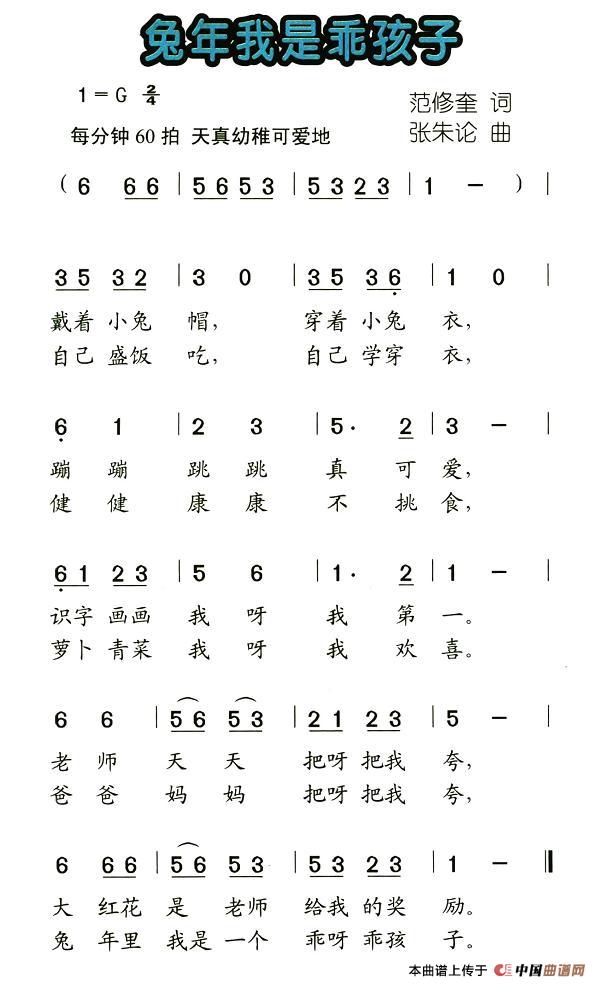 兔年我是乖孩子
1=G 2/4
范修奎 词
每分钟60拍 天真幼稚可爱地
张朱论 曲
( 6 66 | 56 53 | 53 23 | 1 - ) |
35 32 | 3 0 | 35 36 | 1 0 |
戴着 小兔 帽, 穿着 小兔 衣,
自己 盛饭 吃, 自己 学穿 衣,
6 1 | 2 3 | 5· 2 | 3 - |
蹦 蹦 跳 跳 真 可 爱,
健 健 康 康 不 挑 食,
61 23 | 5 6 | 1· 2 | 1 - |
识字 画画 我 呀 我 第 一。
萝卜 青菜 我 呀 我 欢 喜。
6 6 | 56 53 | 21 23 | 5 - |
老 师 天 天 把呀 把我 夸,
爸 爸 妈 妈 把呀 把我 夸,
6 66 | 56 53 | 53 23 | 1 - ‖
大 红花 是 老师 给我 的奖 励。
兔 年里 我是 一个 乖呀 乖孩 子。
本曲谱上传于 中国曲谱网